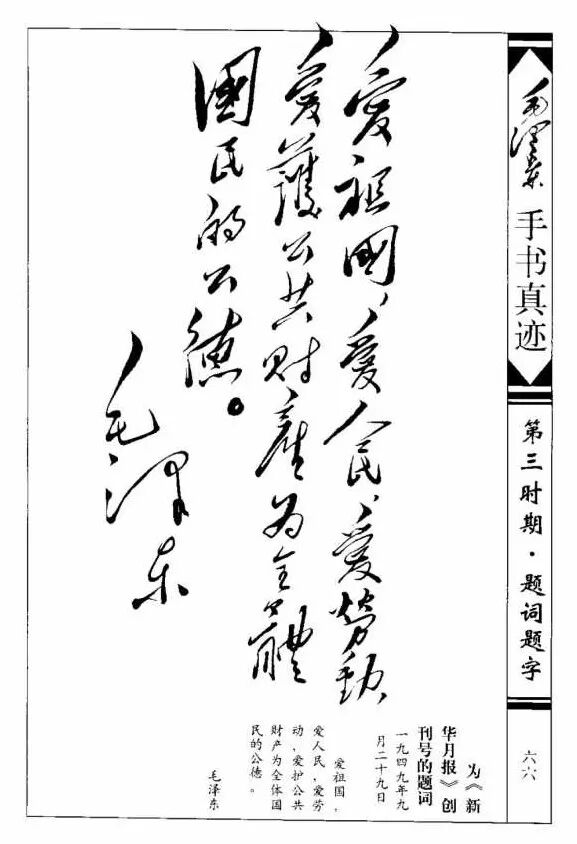 毛泽东
手书真迹
第三时期·题词题字
六六
愛祖國、愛人民、愛勞動、
愛護公共財產为全體
國民的公德。
毛泽东
为《新
华月报》创
刊号的题词
一九四九年九
月二十九日
爱祖国，
爱人民，爱劳
动，爱护公共
财产为全体国
民的公德。
毛泽东